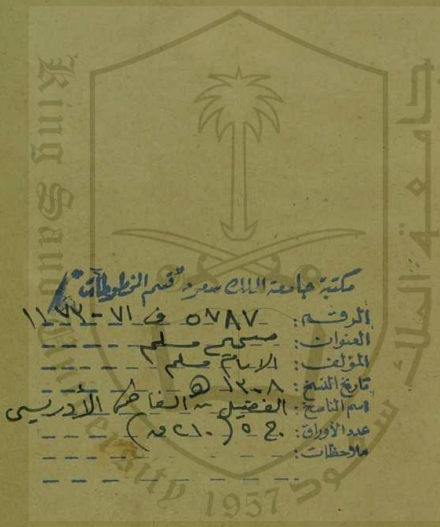 King Saud University
جامعة الملك سعود
1957
مكتبة جامعة الملك سعود "قسم المخطوطات"
الرقم: ٥٧٨٧ ف ٧١ - ١١٧٣
العنوان: صحيح مسلم
المؤلف: الإمام مسلم
تاريخ النسخ: ١٣٠٨ هـ
اسم الناسخ: الفضيل بن الفاطمي الأدريسي
عدد الأوراق: ج ٥ (٢١٠ ق)
ملاحظات: